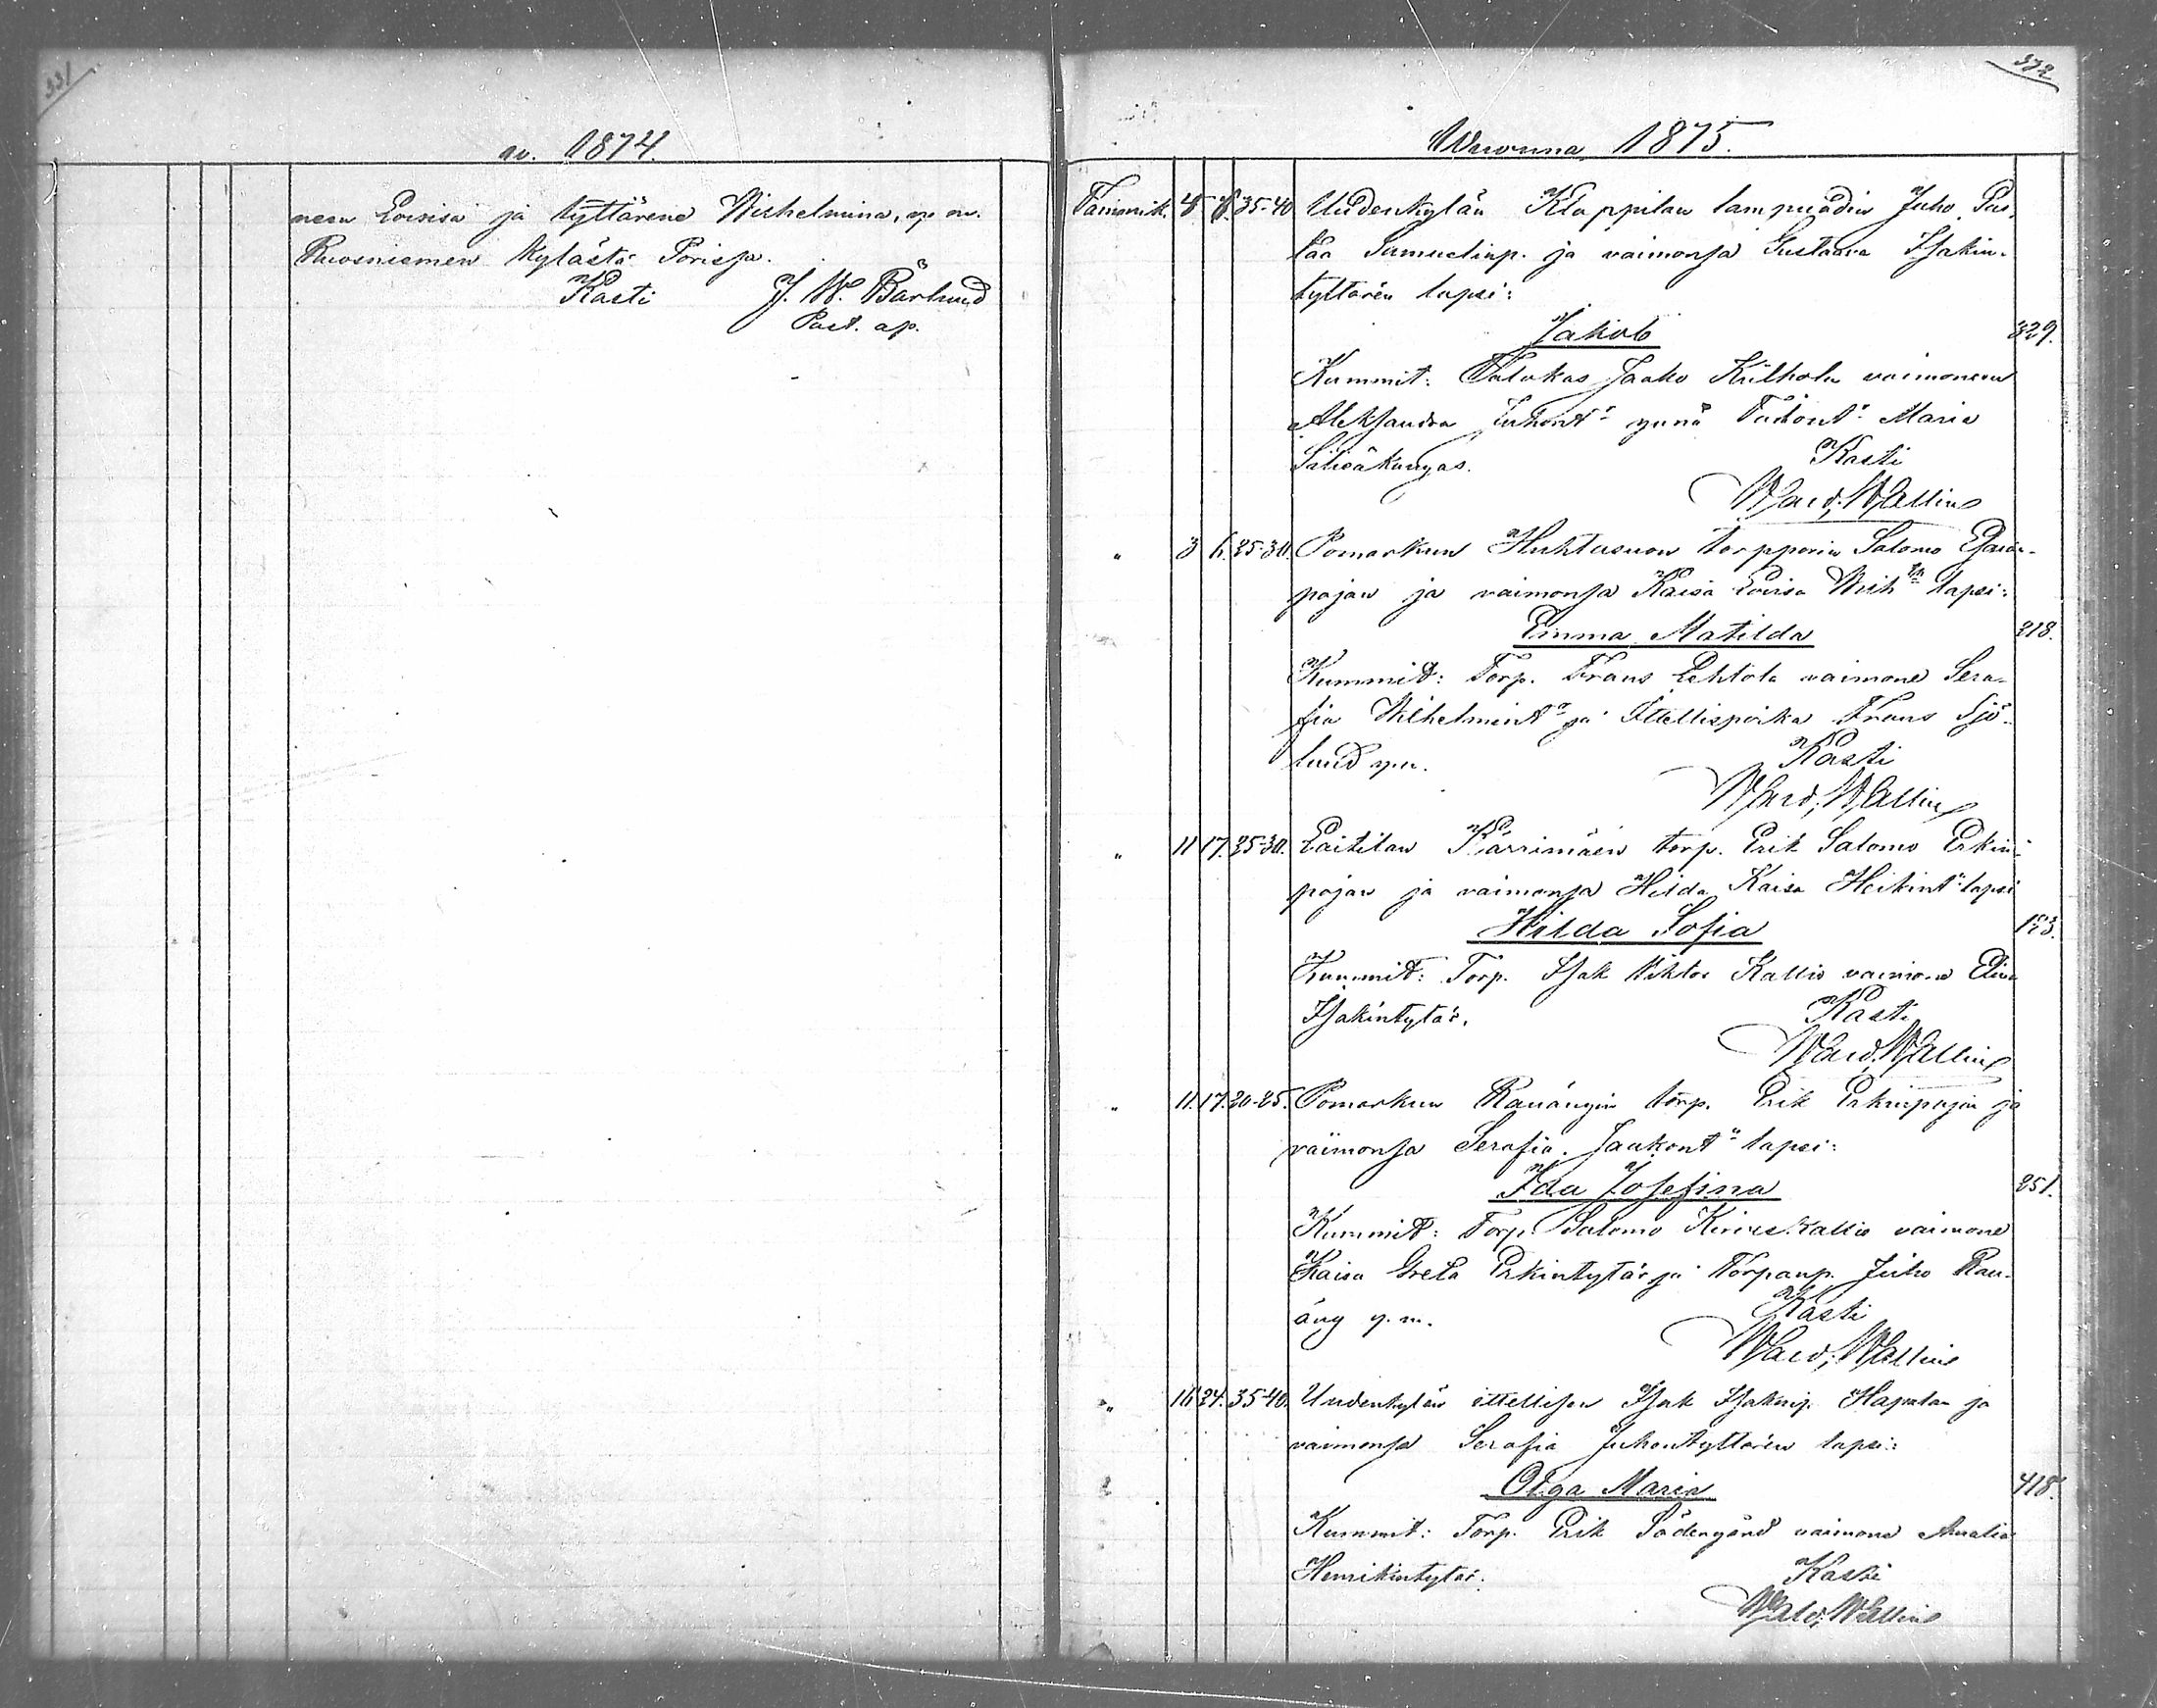 331
w. 1874.
neen Lovisa ja tyttärene Wilhelmina, y. m.
Ruosniemen kylästä Porissa.
Kasti J. W. Bärlund
Past. ap.
332
Wuonna 1875.
Tammik. 4 8. 35-40 Uudenkylän Klappilan lampuodin Juho
Samuelinp. ja vaimonsa Gustaava Isakin-
tyttären lapsi:
Jakob 329.
Kummit: Talokas Jaako Külhola vaimoneen
Aleksandra Juhont. ynnä Maria
Kasti
Wald. Wallin
" 3 6. 25-30. Pomarkun Huhtasuon torpparin Salomo Esaian-
pojan ja vaimonsa Kaisa Lovisa Wilh. lapsi:
Emma Matilda 218.
Kummit: Torp. Frans Lehtola vaimone Sera-
fia Wilhelmint. ja Ittellispoika Frans Sjö-
lund ym. Kasti
Wald. Wallin
" 11 17. 25-30. Laitilan Kärrimäen torp. Erik Salomo Erkin-
pojan ja vaimonsa Hilda Kaisa Heikint. lapsi
Hilda Sofia
Kummit: Torp. Isak Viktor Kallio vaimone Elina
Isakintytär. Kasti
Wald. Wallin
" 11. 17. 20-25. Pomarkun Rauängin torp. Erik Erkinpojan ja
vaimonsa Serafia Jaakont. lapsi:
Ida Josefina 251.
Kummit: Torp. Salomo vaimone
Kaisa Greta Erkintytär ja Torpanp. Juho Rau-
äng y. m. Kasti
Wald. Wallin
" 16 24. 35-40. Uudenkylän ittellisen Isak Isakinp. Hapalan ja
vaimonsa Serafia Juhontyttären lapsi:
Olga Maria 418.
Kummit: Torp. Erik Södergård vaimone Amalia
Henrikintytär. Kasti
Wald. Wallin